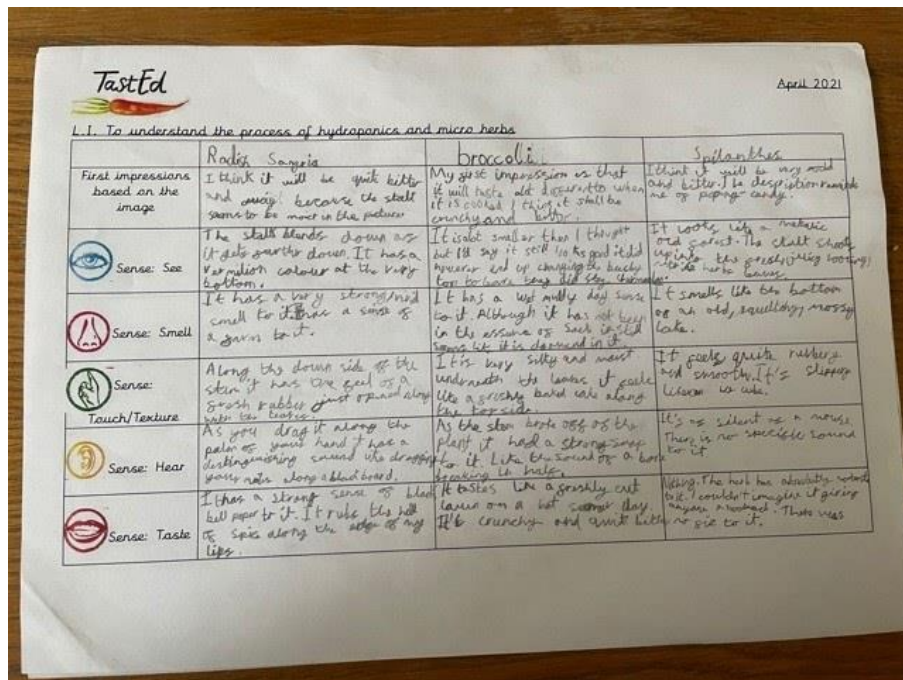 TastEd
April 2021
L.I. To understand the process of hydroponics and micro herbs
Radish Sangria
broccoli
Spilanthes
First impressions
based on the
image
I think it will be quit bitter
and because the stall
seems to be in the picture
My first impression is that
it will taste alot when
it is cooked I it shall be
crunchy and
I think it will be very
and bitter. The description
me of poping candy.
Sense: See
The stalk blends down as
it gets down. It has a
colour at the very
bottom.
It is alot smaller then I thought
but I'd say it still good it did
however end up changing the
to leave
It looks like a
old The stalk
up into the
herb leaves.
Sense: Smell
It has a very strong
smell to it. It has a sense of
a to it.
It has a wet day sense
to it. Although it has not been
in the of such it still
like it is in it.
It smells like the bottom
of an old, mossy
lake.
Sense:
Touch/Texture
Along the down side of the
stem it has the feel of a
fresh rubber just opened along
with the
It is very silky and moist
underneath the leaves it feels
like a along
the top side.
It feels quite
and smooth. It's
Sense: Hear
As you drag it along the
palm of your hand it has a
distinguishing sound like dragging
your nails along a blackboard.
As the stem broke off of the
plant it had a strong
to it. Like the sound of a bone
in half.
It's as silent as a mouse.
There is no sound
to it
Sense: Taste
It has a strong sense of
bell peper to it. It rubs the
of along the edge of my
lips.
It tastes like a freshly cut
on a hot day.
It's crunchy and quit
Nothing. The herb has absolutely
to it. I couldn't imagine it giving
anyone a There was
no to it.